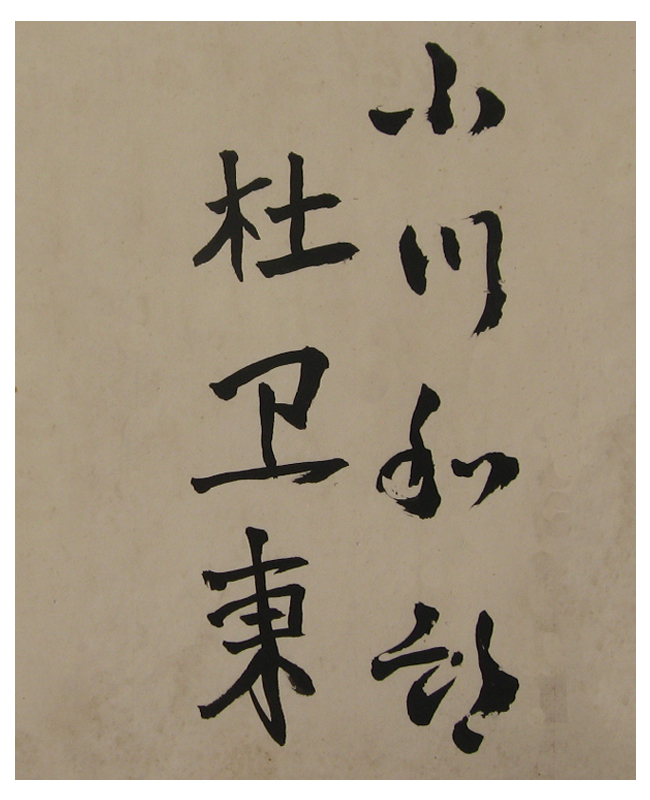 小川和
杜卫東